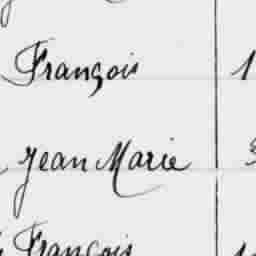 François 1
Jean Marie
François